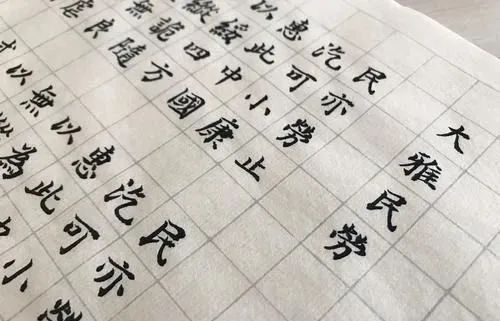 大雅民勞
民亦勞止
汔可小康
惠此中國
以綏四方
縱詭隨
無良
虐
民亦勞
汔可小
惠此中
以為
無
以
式